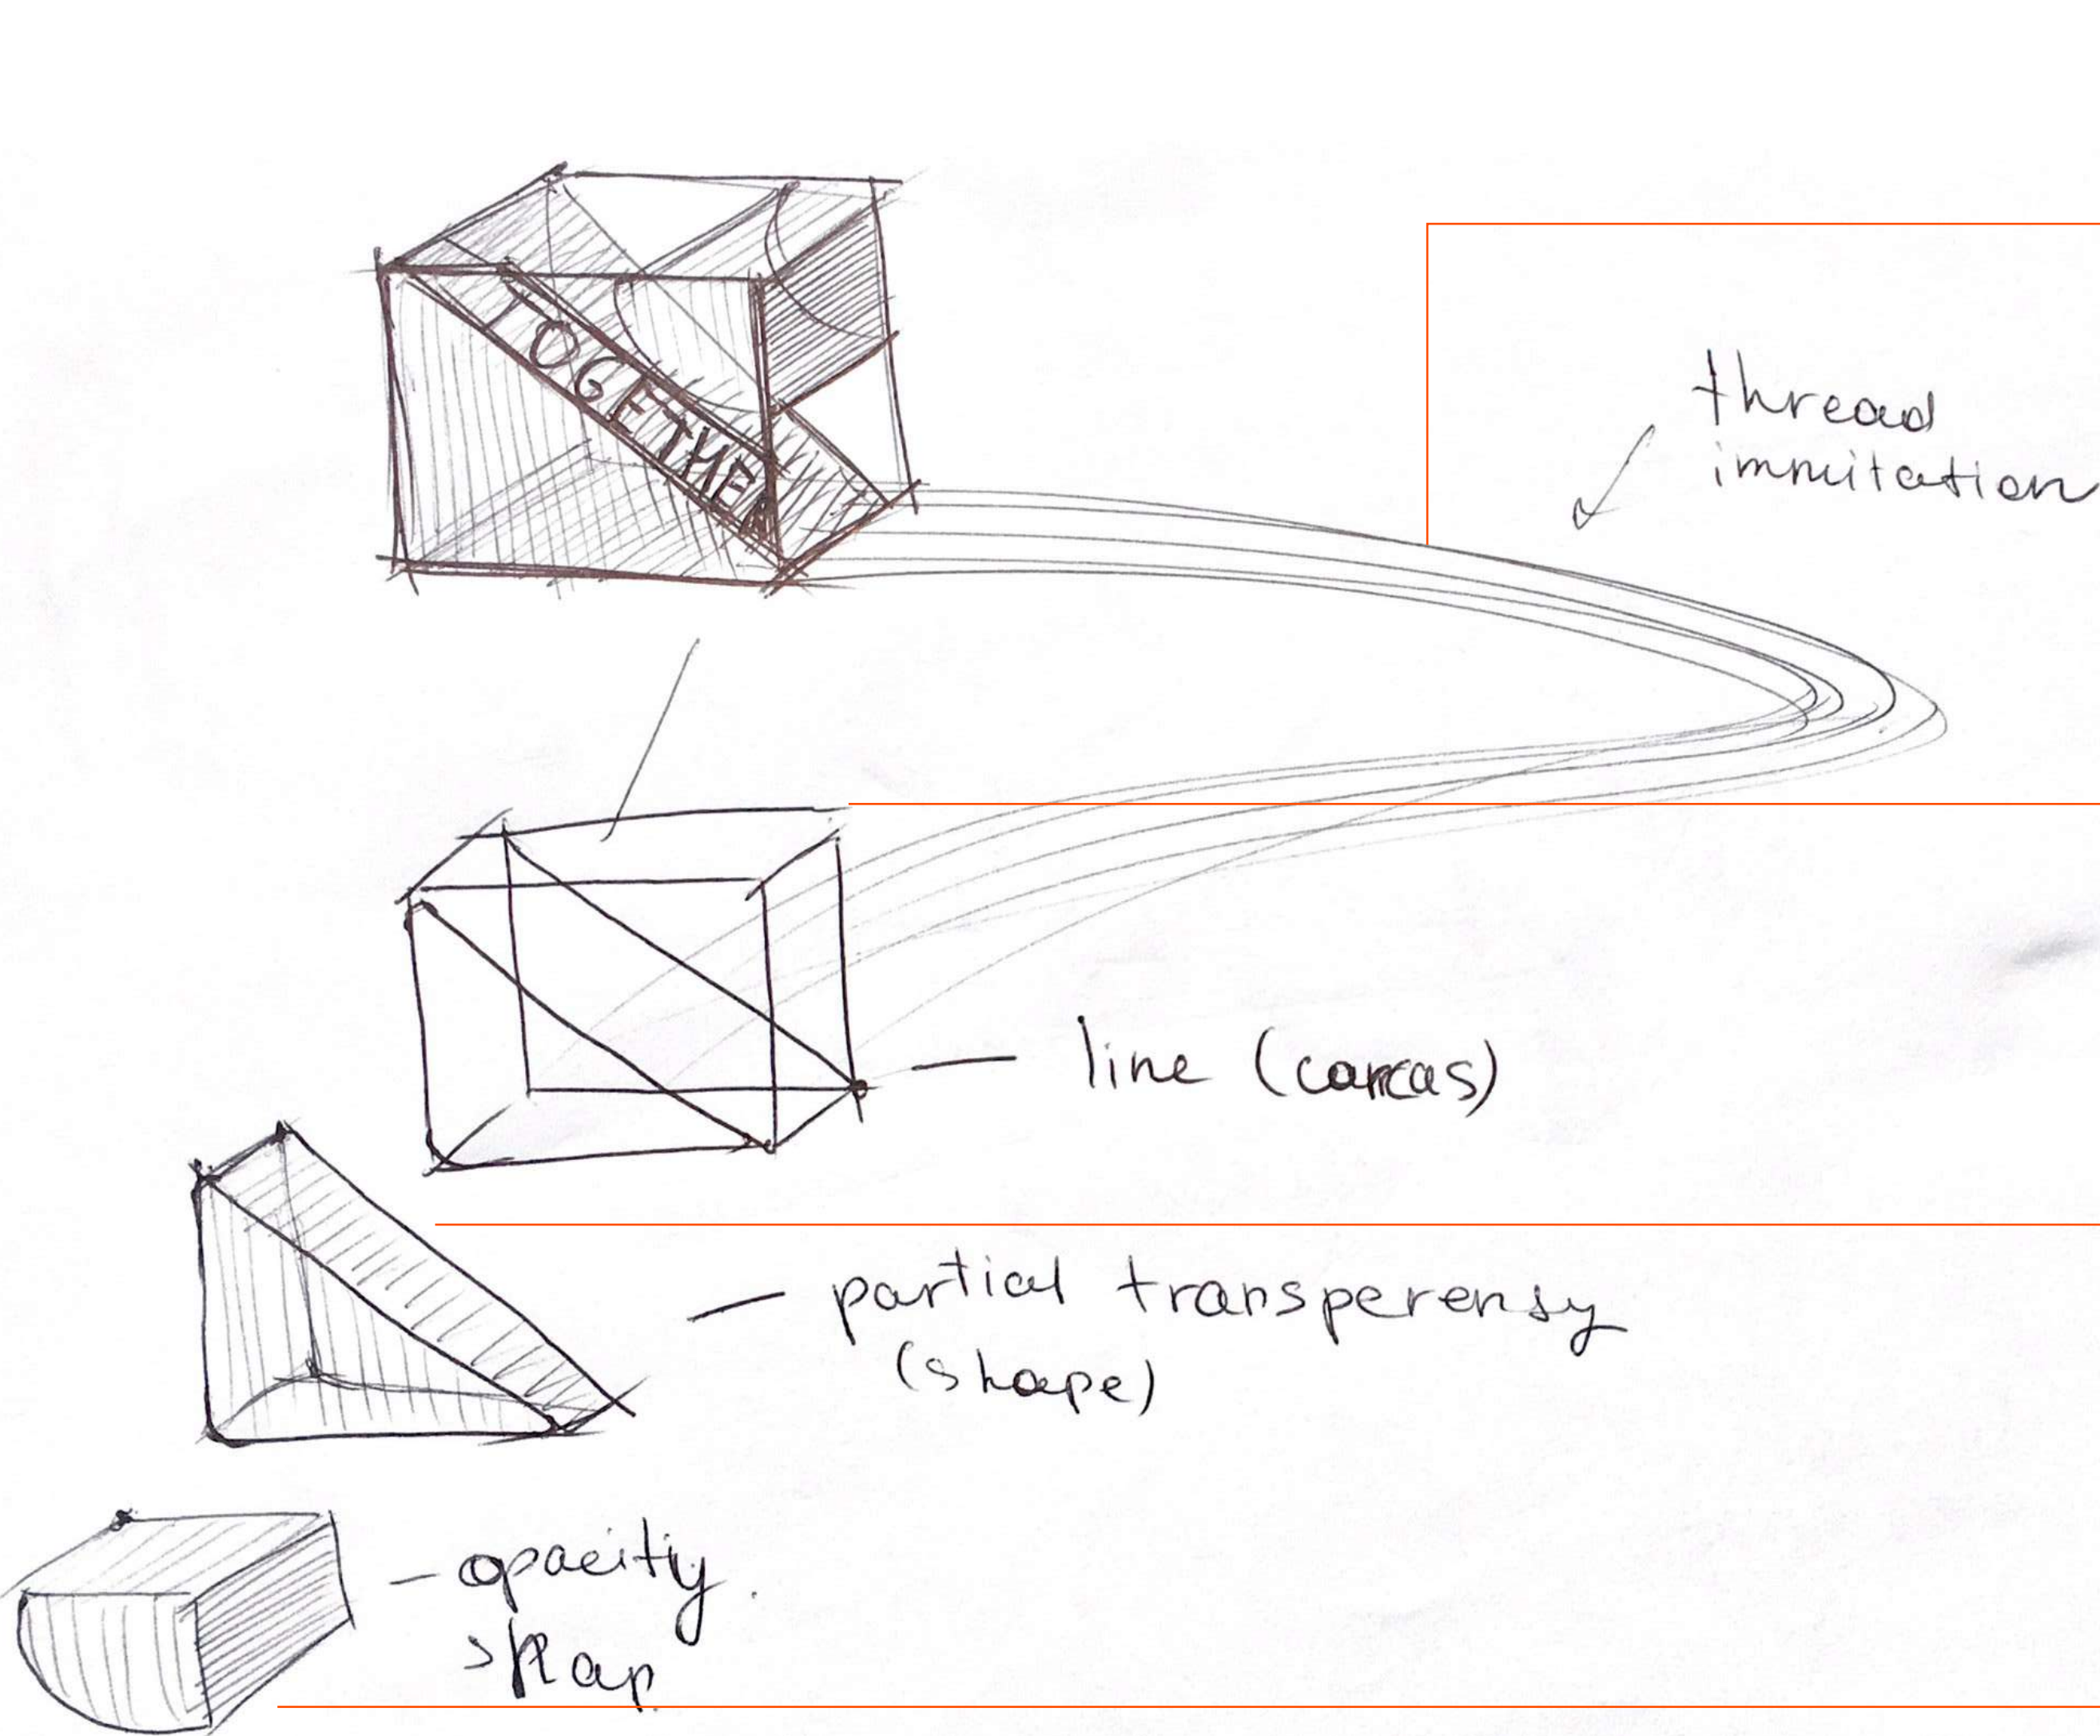 TOGETHER
thread
immitation
line (carcas)
partial transperensy
(shape)
opacitiy
shap